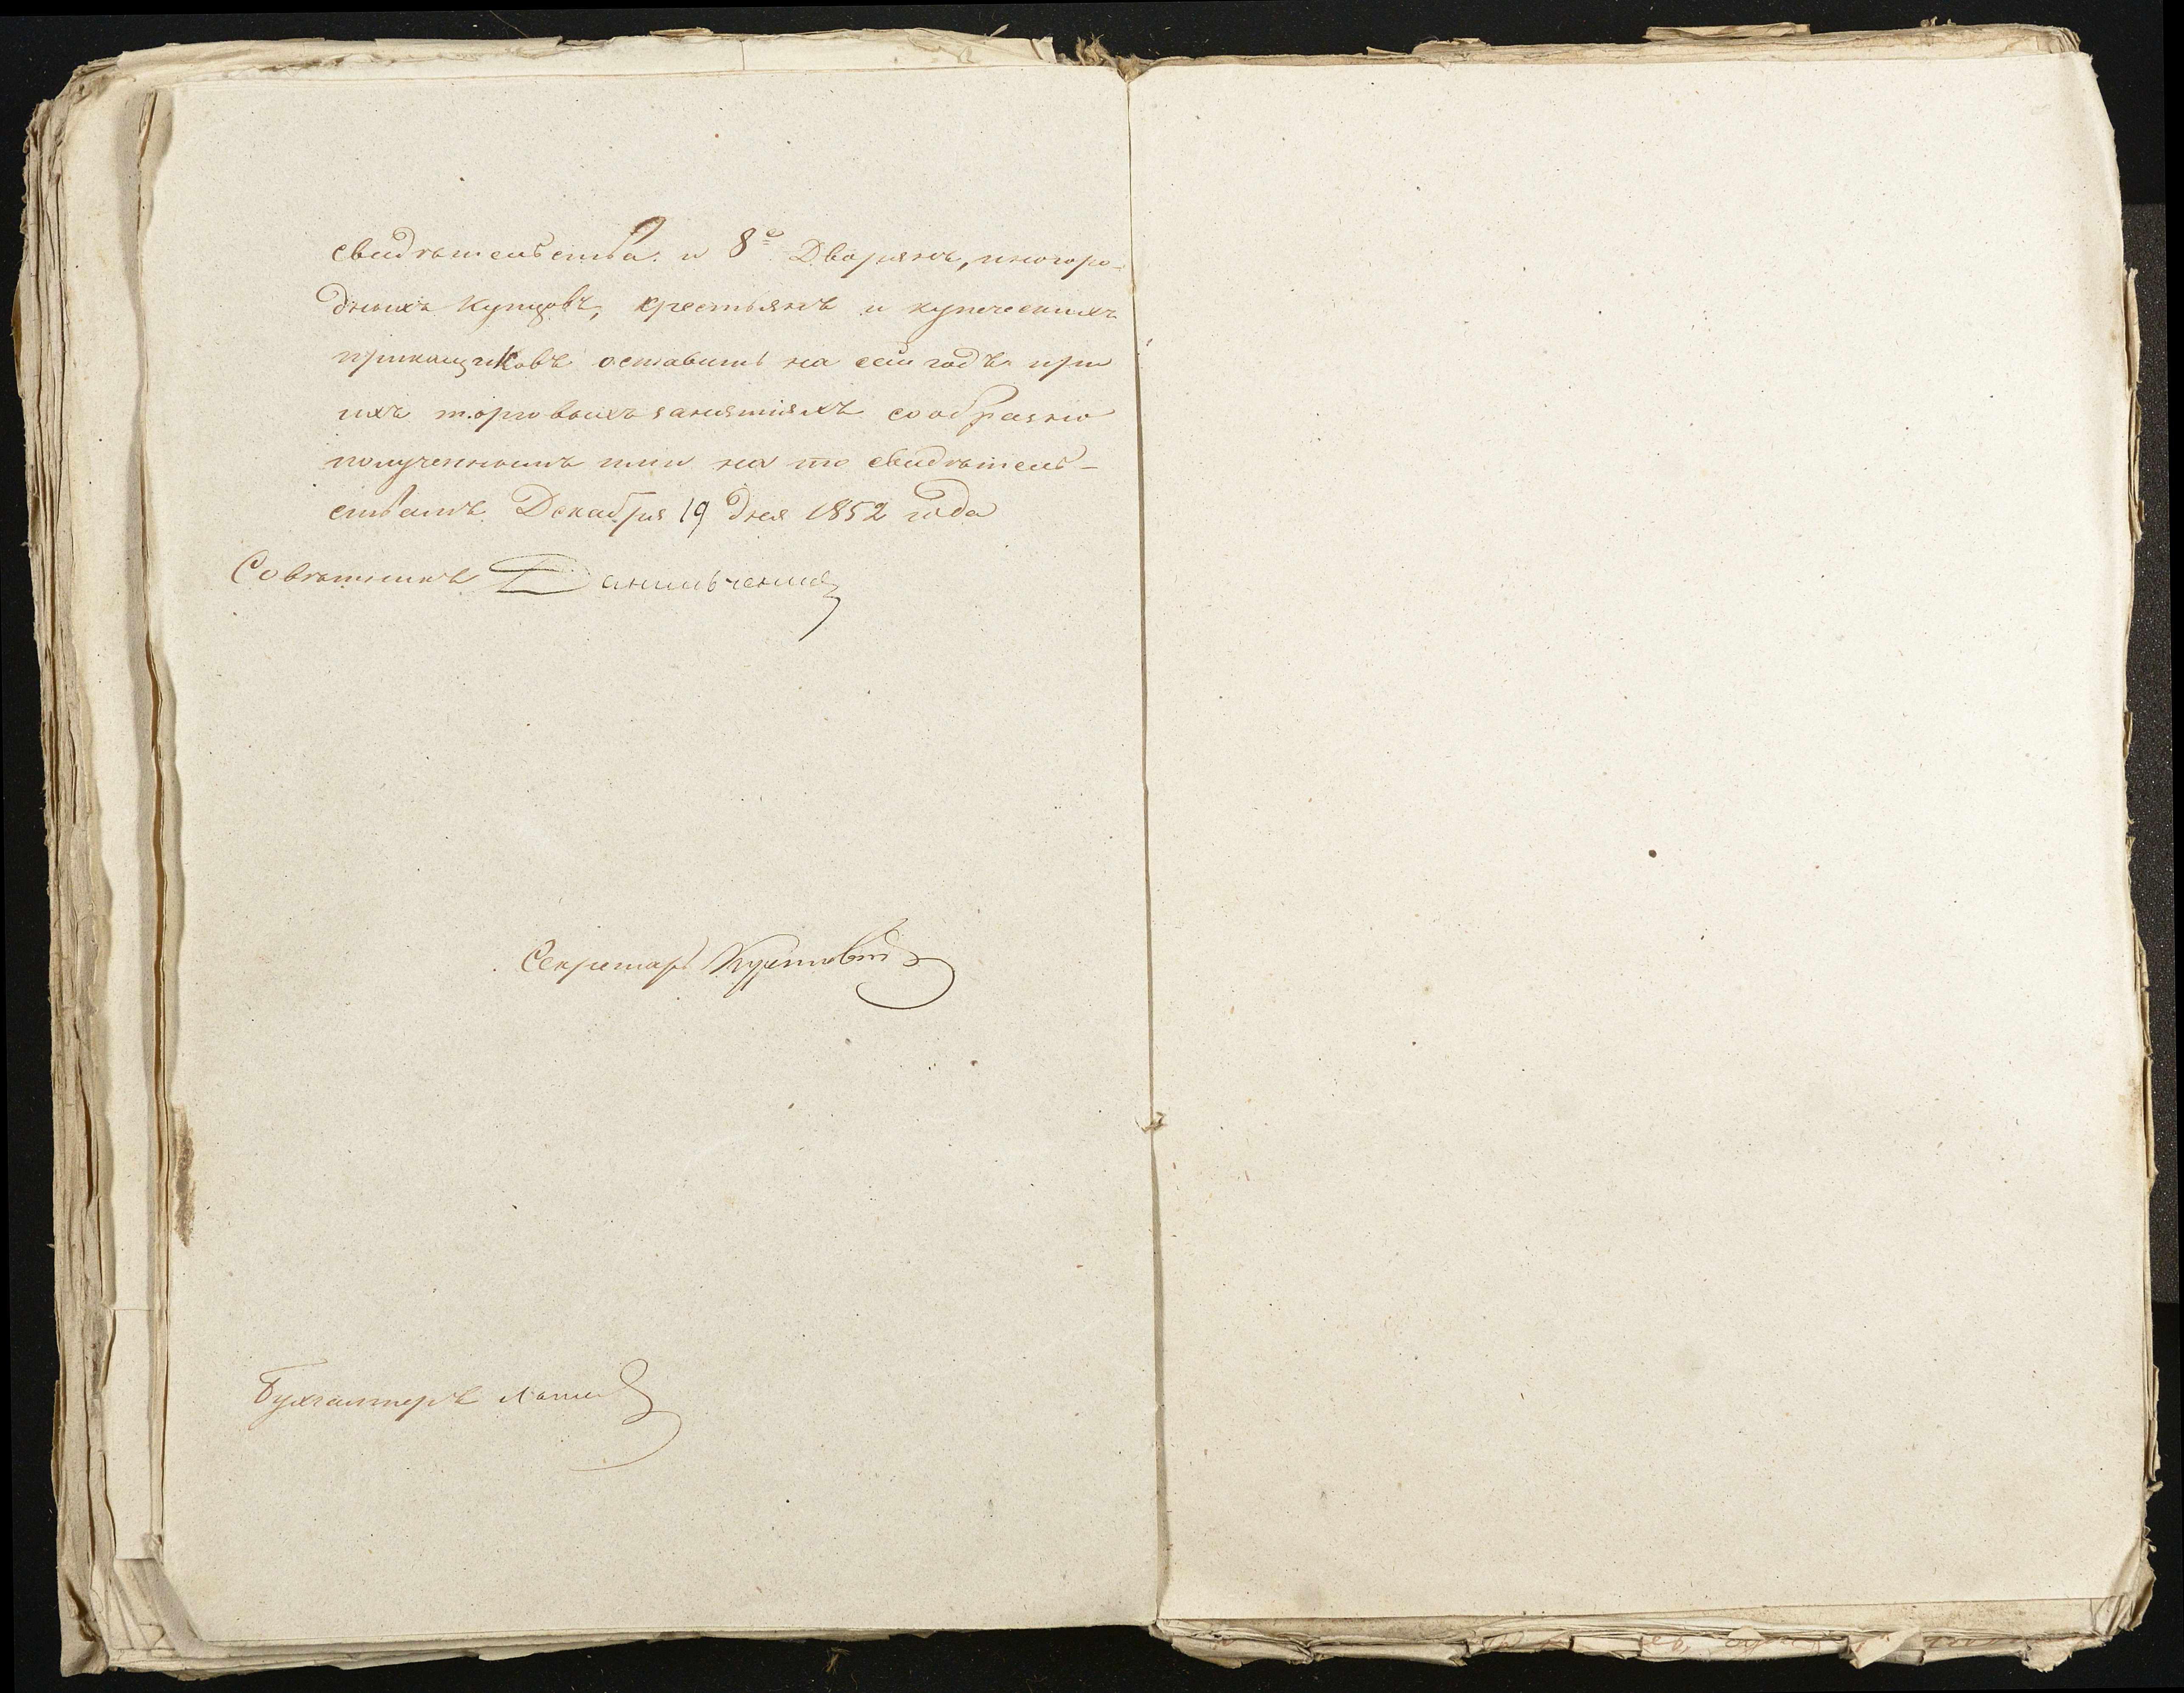 свидѣтельства. и 8е. Дворянъ, иногоро-
дныхъ купцовъ, крестьянъ и купеческихъ
прикащиковъ оставить на сей годъ при
ихъ торговыхъ занятіяхъ сообразно
полученнымъ ими на то свидѣтель-
ствамъ. Декабря 19 дня 1852 года
Совѣтникъ Данильченко
Секретарь
Бухгалтеръ